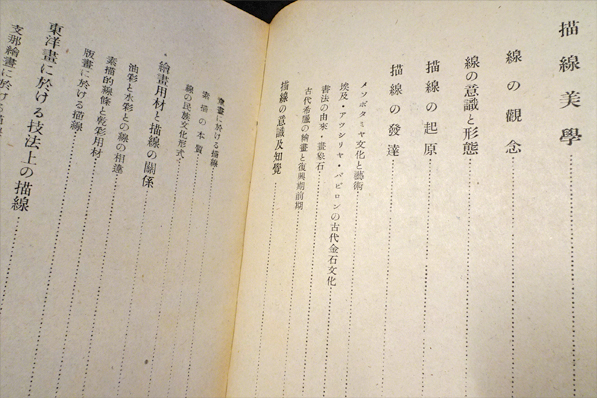 描線美學
線の觀念
線の意識と形態
描線の起原
描線の發達
メソポタミヤ文化と藝術
埃及・アツシリヤ・バビロンの古代金石文化
書法の由來・畫象石
古代希臘の繪畫と復興期前期
描線の意識及知覺
東畫に於ける描線
素描の本質
線の民族文化形式
繪畫用材と描線の關係
油彩と水彩との線の相違
素描的線條と乾彩用材
版畫に於ける描線
東洋畫に於ける技法上の描線
支那繪畫に於ける描線